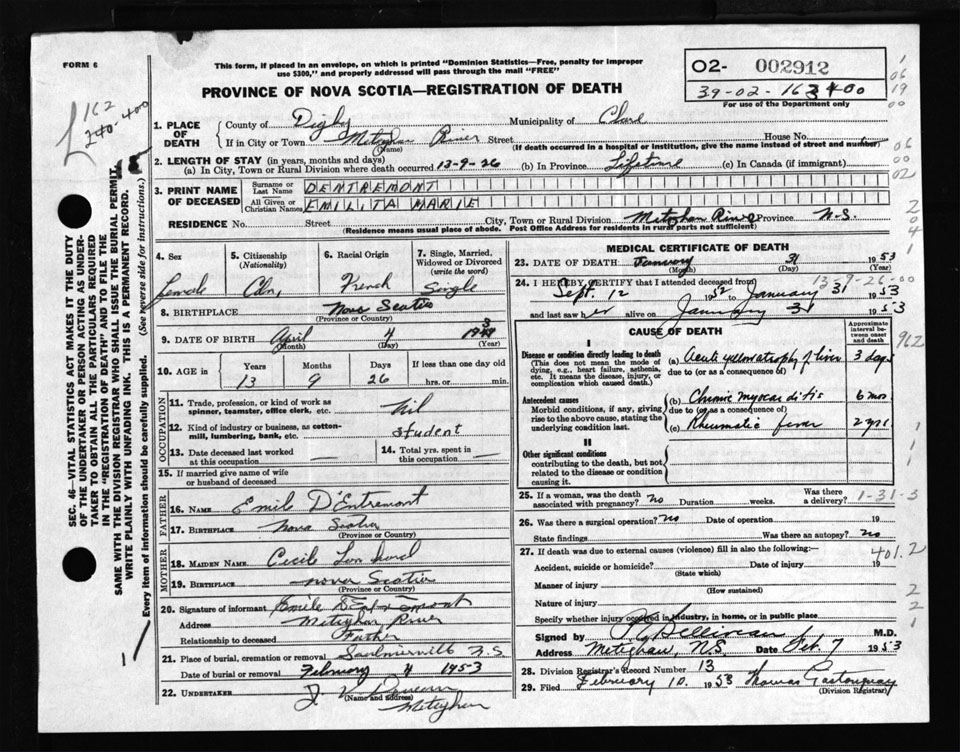 FORM 6
This form, if placed in an envelope, on which is printed "Dominion Statistics—Free, penalty for improper
use $300," and properly addressed will pass through the mail "FREE"
PROVINCE OF NOVA SCOTIA—REGISTRATION OF DEATH
02- 002912
39-02-163400
For use of the Department only
162
240-400
1. PLACE OF DEATH
County of Digby Municipality of Clare
If in City or Town Meteghan River Street House No.
(Name) (If death occurred in a hospital or institution, give the name instead of street and number)
2. LENGTH OF STAY (in years, months and days)
(a) In City, Town or Rural Division where death occurred 13-9-26 (b) In Province Lifetime (c) In Canada (if immigrant)
3. PRINT NAME OF DECEASED
Surname or Last Name DENTREMONT
All Given or Christian Names EMILITA MARIE
RESIDENCE No. Street City, Town or Rural Division Meteghan River Province N.S.
(Residence means usual place of abode. Post Office Address for residents in rural parts not sufficient)
4. Sex
female
5. Citizenship
(Nationality)
Cdn,
6. Racial Origin
French
7. Single, Married, Widowed or Divorced
(write the word)
Single
8. BIRTHPLACE Nova Scotia
(Province or Country)
9. DATE OF BIRTH April 4
(Month) (Day) (Year)
10. AGE in Years Months Days If less than one day old
13 9 26 hrs. or min.
OCCUPATION
11. Trade, profession, or kind of work as spinner, teamster, office clerk, etc. nil
12. Kind of industry or business, as cotton-mill, lumbering, bank, etc. student
13. Date deceased last worked at this occupation —
14. Total yrs. spent in this occupation —
15. If married give name of wife or husband of deceased
FATHER
16. NAME Emile D'Entremont
17. BIRTHPLACE Nova Scotia
(Province or Country)
MOTHER
18. MAIDEN NAME Cecile
19. BIRTHPLACE nova Scotia
(Province or Country)
20. Signature of informant Emile D'Entremont
Address Meteghan River
Relationship to deceased Father
21. Place of burial, cremation or removal Saulnierville N.S.
Date of burial or removal February 4 1953
22. UNDERTAKER
(Name and address)
Meteghan
MEDICAL CERTIFICATE OF DEATH
23. DATE OF DEATH January 31 1953
(Month) (Day) (Year)
24. I HEREBY CERTIFY that I attended deceased from
13-9-26-00
Sept. 12 1952 to January 31 1953
and last saw her alive on January 31 1953
CAUSE OF DEATH
Approximate interval between onset and death
I
Disease or condition directly leading to death
(This does not mean the mode of dying, e.g., heart failure, asthenia, etc. It means the disease, injury, or complication which caused death.)
(a) Acute yellow atrophy of liver 3 days
due to (or as a consequence of)
Antecedent causes
Morbid conditions, if any, giving rise to the above cause, stating the underlying condition last.
(b) Chronic myocarditis 6 mos
due to (or as a consequence of)
(c) Rheumatic fever 2 yrs
II
Other significant conditions
contributing to the death, but not related to the disease or condition causing it.
25. If a woman, was the death associated with pregnancy? no Duration weeks. Was there a delivery?
1-31-3
26. Was there a surgical operation? no Date of operation 19
State findings Was there an autopsy? no
27. If death was due to external causes (violence) fill in also the following:
401.2
Accident, suicide or homicide? Date of injury 19
(State which)
Manner of injury
(How sustained)
Nature of injury
Specify whether injury occurred in industry, in home, or in public place
Signed by M.D.
Address Meteghan, N.S. Date Feb. 7 1953
28. Division Registrar's Record Number 13
29. Filed February 10, 1953 Thomas
(Division Registrar)
SEC. 46—VITAL STATISTICS ACT MAKES IT THE DUTY
OF THE UNDERTAKER OR PERSON ACTING AS UNDERTAKER TO OBTAIN ALL THE PARTICULARS REQUIRED
IN THE "REGISTRATION OF DEATH" AND TO FILE THE
SAME WITH THE DIVISION REGISTRAR WHO SHALL ISSUE THE BURIAL PERMIT.
WRITE PLAINLY WITH UNFADING INK. THIS IS A PERMANENT RECORD.
Every item of information should be carefully supplied. (See reverse side for instructions.)
962